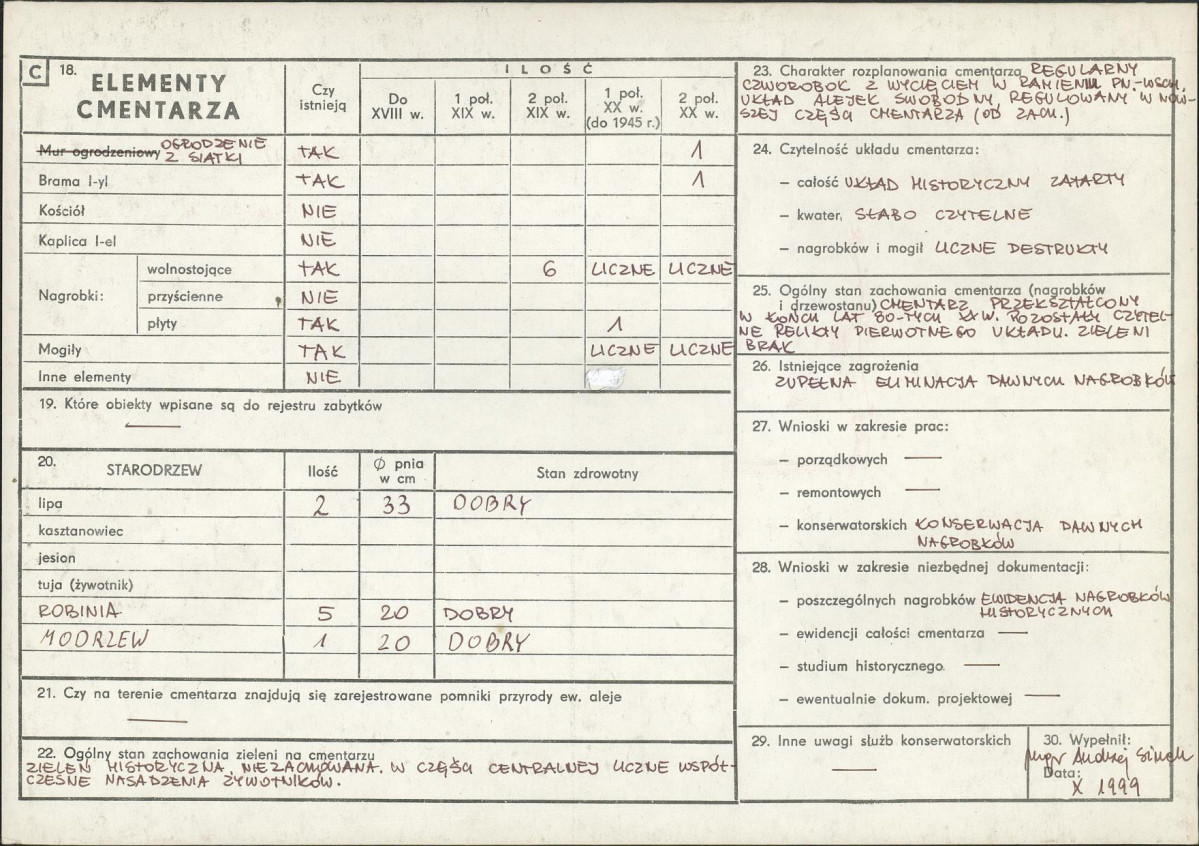 C 18. ELEMENTY CMENTARZA
Czy istnieją
ILOŚĆ
Do XVIII w.
1 poł. XIX w.
2 poł. XIX w.
1 poł. XX w. (do 1945 r.)
2 poł. XX w.
Mur ogrodzeniowy OGRODZENIE Z SIATKI TAK 1
Brama I-yl TAK 1
Kościół NIE
Kaplica I-el NIE
Nagrobki:
wolnostojące TAK 6 LICZNE LICZNE
przyścienne NIE
płyty TAK 1
Mogiły TAK LICZNE LICZNE
Inne elementy NIE
19. Które obiekty wpisane są do rejestru zabytków
—
20. STARODRZEW Ilość Ø pnia w cm Stan zdrowotny
lipa 2 33 DOBRY
kasztanowiec
jesion
tuja (żywotnik)
ROBINIA 5 20 DOBRY
MODRZEW 1 20 DOBRY
21. Czy na terenie cmentarza znajdują się zarejestrowane pomniki przyrody ew. aleje
—
22. Ogólny stan zachowania zieleni na cmentarzu
ZIELEŃ HISTORYCZNA NIEZACHOWANA. W CZĘŚCI CENTRALNEJ LICZNE WSPÓŁ-
CZESNE NASADZENIA ŻYWOTNIKÓW.
23. Charakter rozplanowania cmentarza REGULARNY
CZWOROBOK Z WYCIĘCIEM W RAMIENIU PN.-WSCH.
UKŁAD ALEJEK SWOBODNY, REGULOWANY W NOW-
SZEJ CZĘŚCI CMENTARZA (OD ZACH.)
24. Czytelność układu cmentarza:
– całość UKŁAD HISTORYCZNY ZATARTY
– kwater, SŁABO CZYTELNE
– nagrobków i mogił LICZNE DESTRUKTY
25. Ogólny stan zachowania cmentarza (nagrobków
i drzewostanu) CMENTARZ PRZEKSZTAŁCONY
W KOŃCU LAT 80-TYCH XX W. POZOSTAŁY CZYTEL-
NE RELIKTY PIERWOTNEGO UKŁADU. ZIELENI
BRAK
26. Istniejące zagrożenia
ZUPEŁNA ELIMINACJA DAWNYCH NAGROBKÓW
27. Wnioski w zakresie prac:
– porządkowych —
– remontowych —
– konserwatorskich KONSERWACJA DAWNYCH
NAGROBKÓW
28. Wnioski w zakresie niezbędnej dokumentacji:
– poszczególnych nagrobków EWIDENCJA NAGROBKÓW
HISTORYCZNYCH
– ewidencji całości cmentarza —
– studium historycznego —
– ewentualnie dokum. projektowej —
29. Inne uwagi służb konserwatorskich
—
30. Wypełnił:
mgr Andrzej
Data:
X 1999